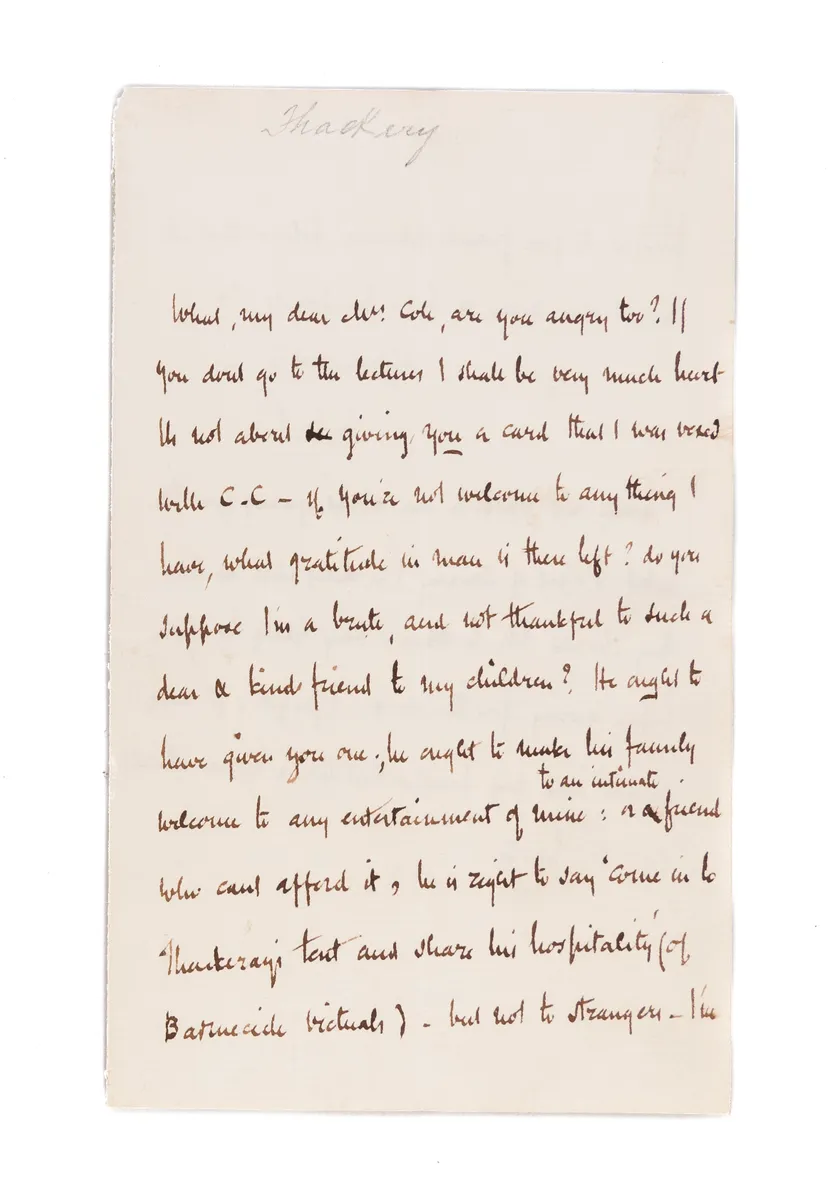 Thackery
What, my dear Mrs. Cole, are you angry too? If
you dont go to the lectures I shall be very much hurt
Its not about giving you a card that I was vexed
with C.C – if you're not welcome to any thing I
have, what gratitude in man is there left? do you
suppose I'm a brute, and not thankful to such a
dear & kind friend to my children? He ought to
have given you one; he ought to make his family
to an intimate
welcome to any entertainment of mine: or a friend
who cant afford it, he is right to say 'Come in to
Thackeray's tent and share his hospitality' (of
Barmecide victuals) - but not to strangers – I'm